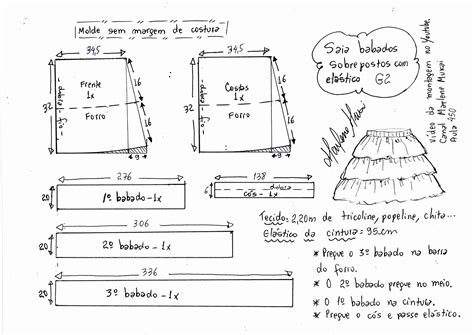 Molde sem margem de costura
Saia babados
sobrepostos com
elástico G2
Vídeo da montagem no Youtube.
Canal Marlene Mukai
Aula 450
Marlene Mukai
34,5
Frente
1x
Forro
32
16
16
9
34,5
Costas
1x
Forro
32
16
16
9
276
20
1º babado - 1x
138
6
dobra
cós - 1x
306
20
2º babado - 1x
336
20
3º babado - 1x
Tecido: 2,20m de tricoline, popeline, chita...
Elástico da cintura = 95cm
* Pregue o 3º babado na barra
do forro.
* O 2º babado pregue no meio.
* O 1º babado na cintura.
* Pregue o cós e passe elástico.